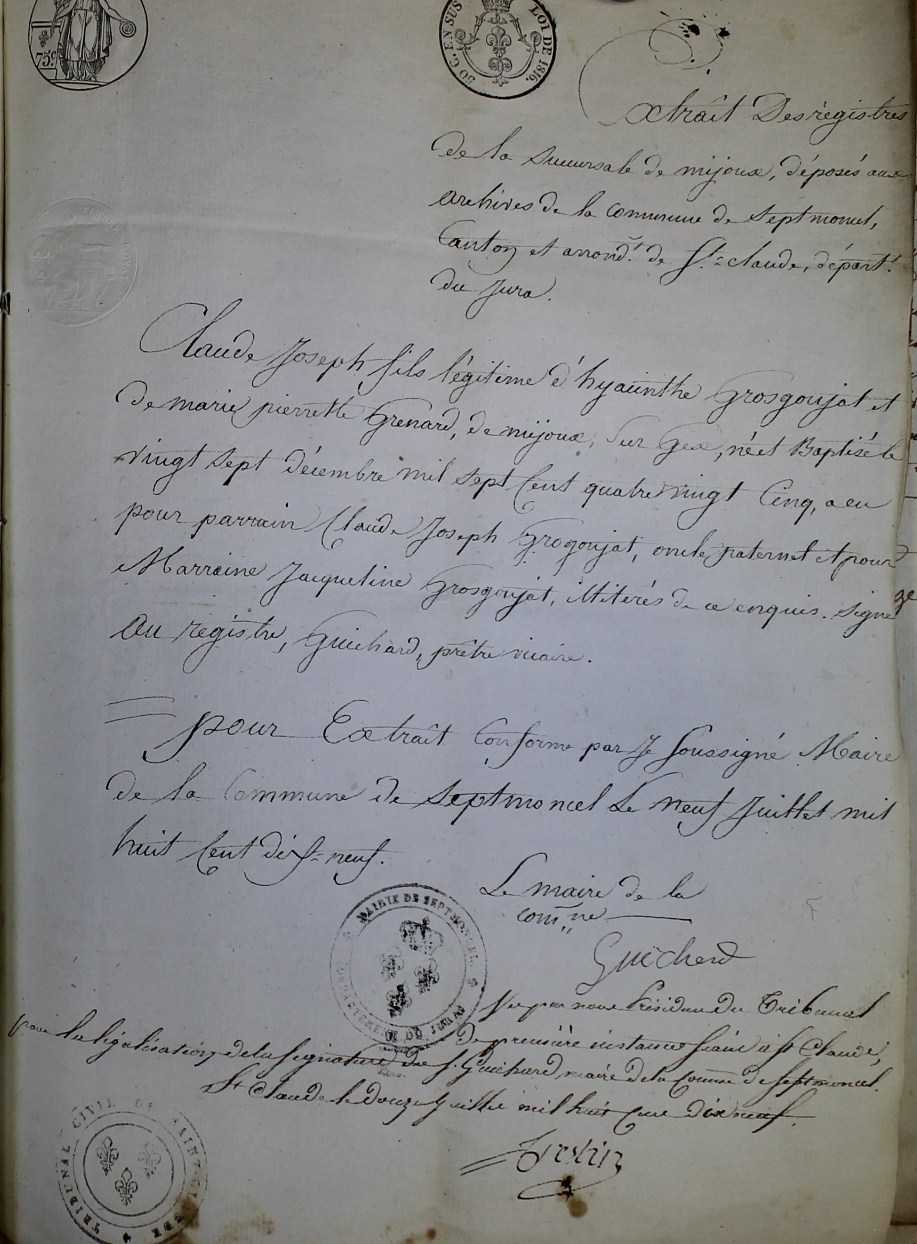 75c
50 C. EN SUS LOI DE 1816.
Extrait Des régistres
de la succursale de mijoux, déposés aux
archives de la commune de Septmoncel,
Canton et arrond.t de St=claude, départ.t
du Jura.
Claude Joseph fils légitime d'hyacinthe Grosgoujat et
de marie pierrette Grenard, de mijoux, Sur Gex, né et Baptisé le
vingt sept décembre mil sept Cent quatre vingt Cinq, a eu
pour parrain Claude Joseph Grogoujat, oncle paternel et pour
Marraine Jacqueline Grosgoujat, illitérés de ce enquis. Signé
au régistre, Guichard, prêtre vicaire.
pour Extrait Conforme par Je Soussigné Maire
de la Commune de Septmoncel Le neuf Juillet mil
huit Cent dix-neuf.
Le maire de la
com.ne
Guichard
MAIRIE DE SEPTMONCEL. DEPARTEMENT DU JURA
Vu par nous Président du Tribunal
de première instance séant à St Claude,
pour la légalisation de la signature du S. Guichard, maire de la Comne de Septmoncel.
St Claude le douze Juillet mil huit Cent dix neuf.
TRIBUNAL CIVIL DE SAINT-CLAUDE